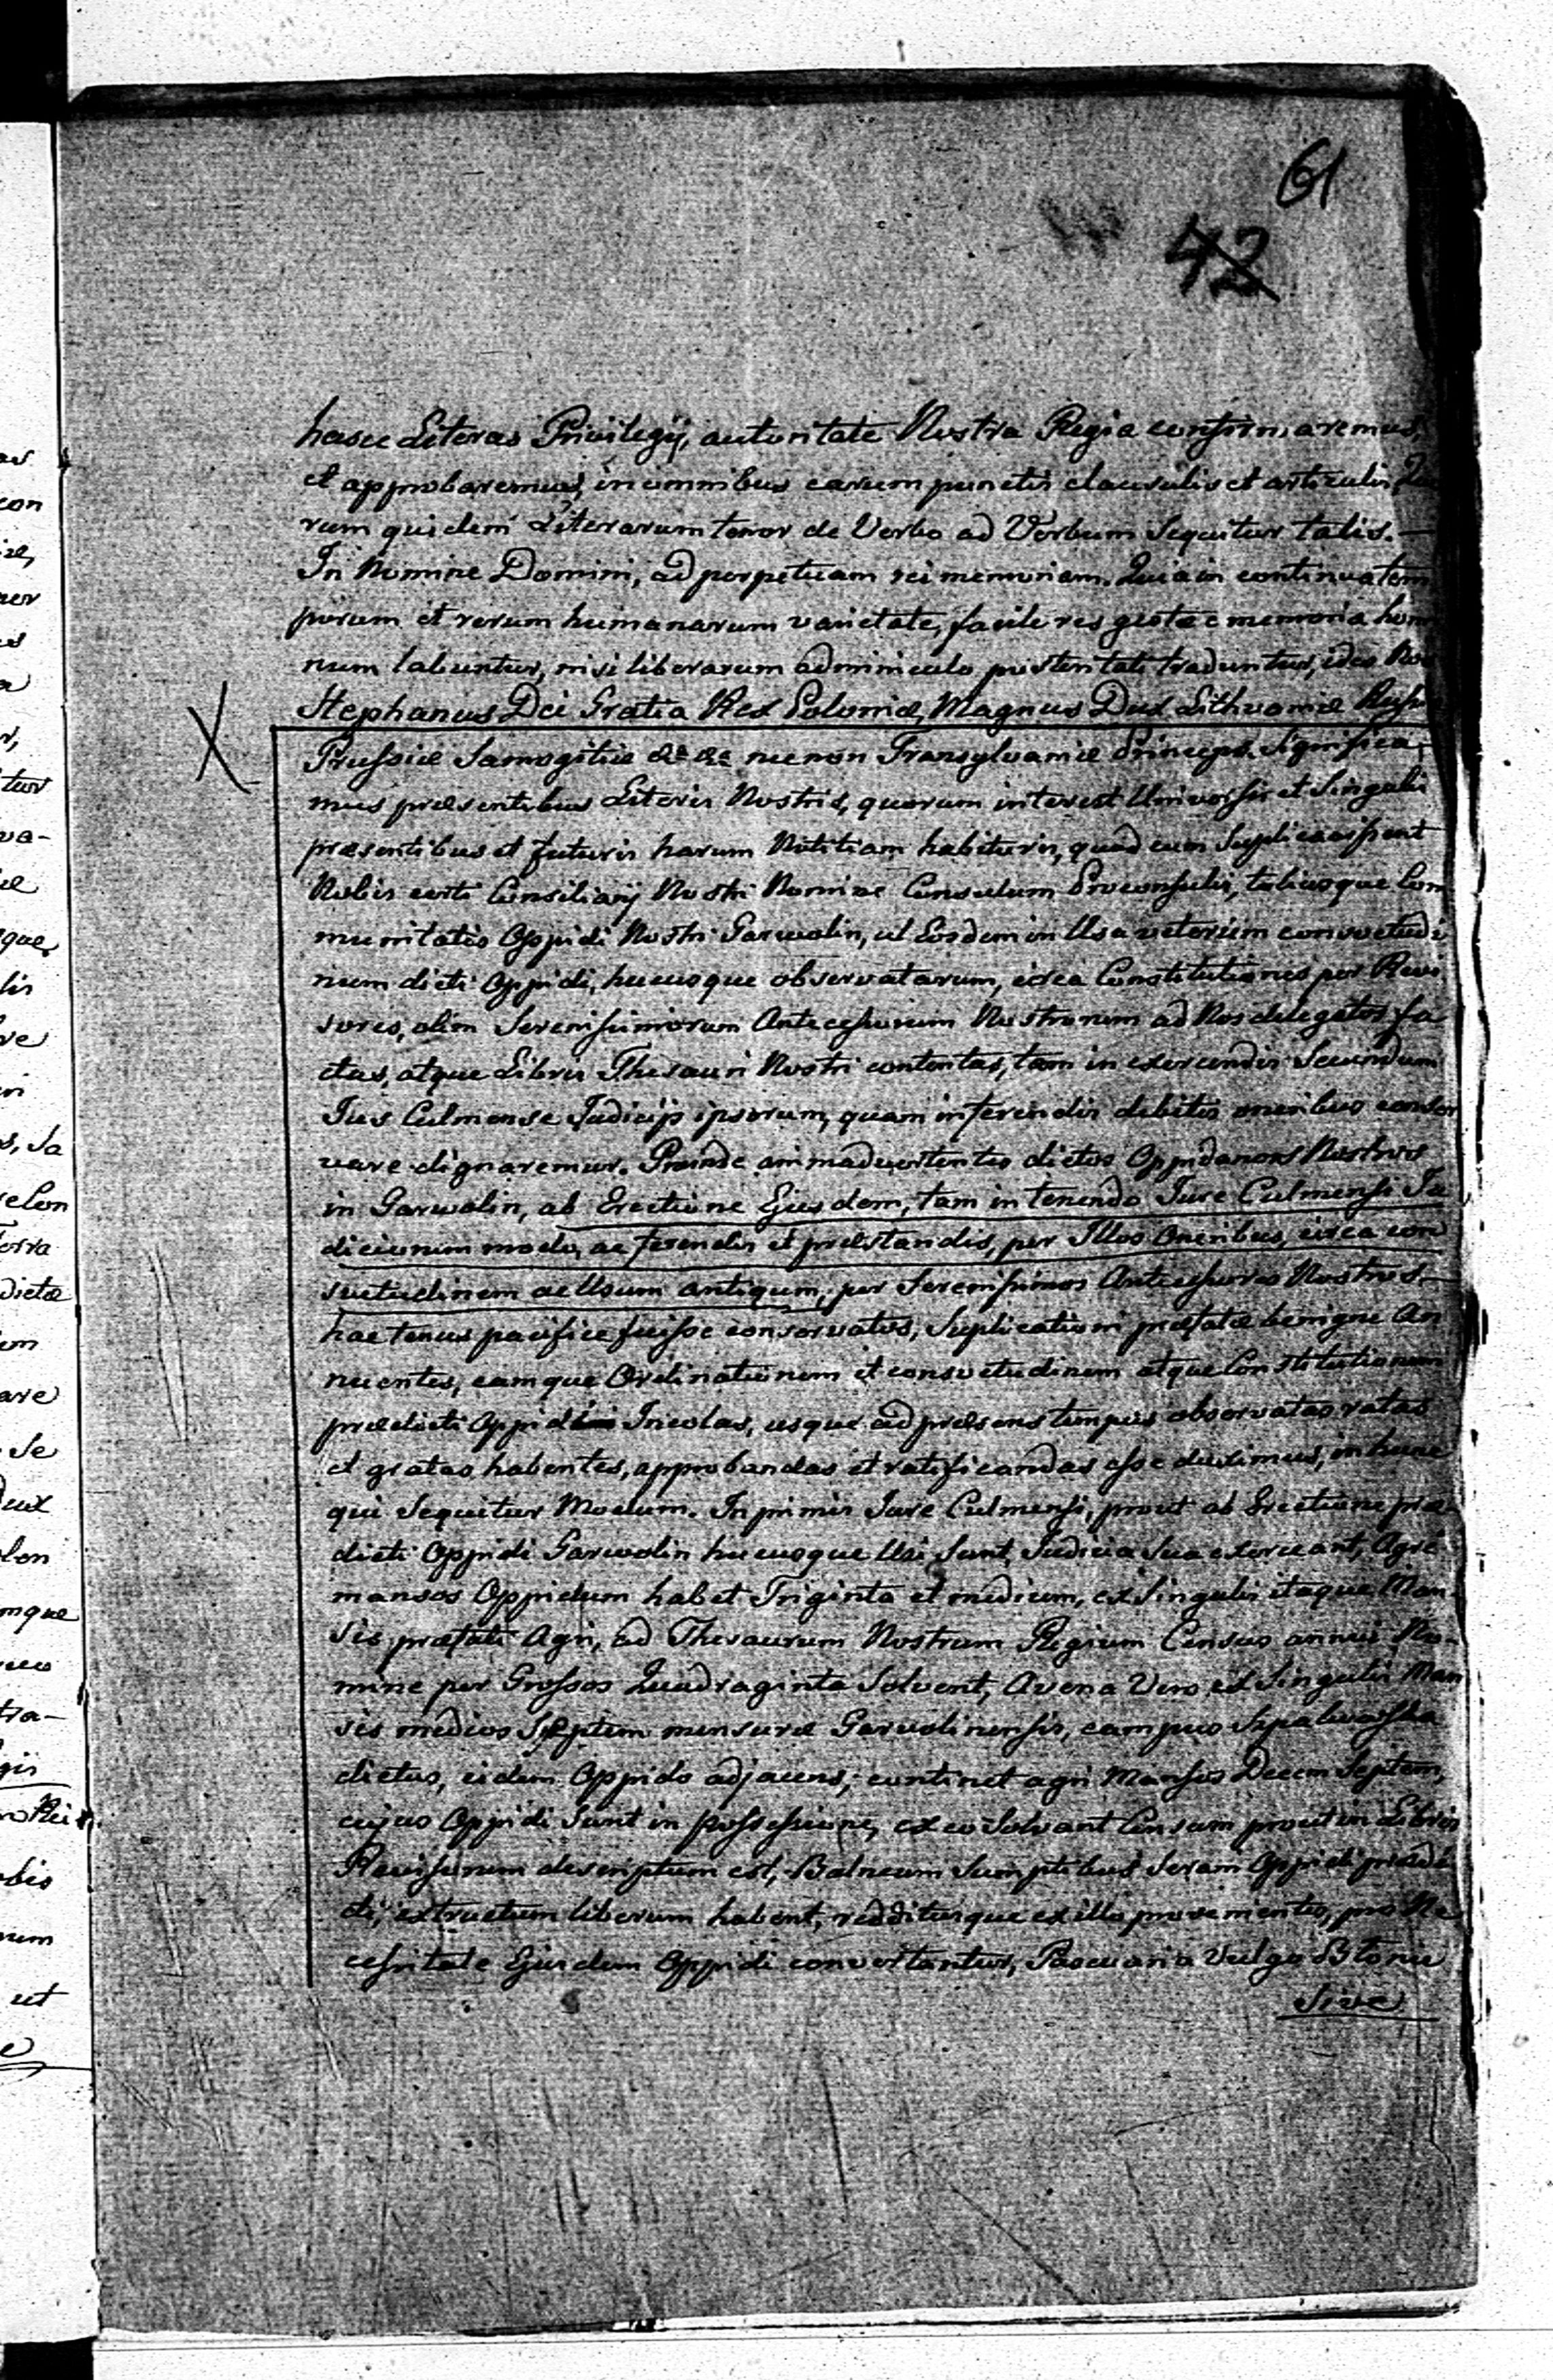 61
42
hasce Literas Privilegij, autoritate Nostra Regia confirmaremus,
et approbaremus, in omnibus earum punctis clausulis et articulis, Quo
rum quidem Literarum tenor de Verbo ad Verbum Sequitur talis.—
In Nomine Domini, ad perpetuam rei memoriam. Quia in continua tem
porum et rerum humanarum varietate, facile res gestae e memoria homi
num labuntur, nisi liberarum adminiculo posteritati traduntur, ideo Nos
Stephanus Dei Gratia Rex Poloniæ, Magnus Dux Lithvaniæ Russiæ
Prussiæ Samogitiæ &a &a necnon Transylvaniæ Princeps. Significa-
mus præsentibus Literis Nostris, quorum interest Universis et Singulis
præsentibus et futuris harum Notitiam habituris, quod cum Suplicassent
Nobis certi Consiliarij Nostri Nomine Consulum Proconsulis, totiusque Com
munitatis Oppidi Nostri Garwolin, ut Eosdem in Usu veterum consvetudi
num dicti Oppidi, hucusque observatarum, circa Constitutiones per Revi
sores, olim Serenissimorum Antecessorum Nostrorum ad Nos delegatos fa
ctas, atque Libris Thesauri Nostri contentas, tam in exercendis Secundum
Jus Culmense Judicijs ipsorum, quam in ferendis debitis oneribus conser
vare dignaremur. Proinde animadvertentes dictos Oppidanos Nostros
in Garwolin, ab Erectione Ejusdem, tam in tenendo Jure Culmensi Ju
diciorum modo, ac ferendis et præstandis, per Illos Oneribus, circa con
svetudinem ac Usum antiqum, per Serenissimos Antecessores Nostros—
hactenus pacifice fuisse conservatos, Suplicationi præfatæ benigne An
nuentes, eamque Ordinationem et consvetudinem atque Constitutionem
prædicti Oppidi Incolas, usque ad præsens tempus observatas ratas
et gratas habentes, approbandas et ratificandas esse duximus, in hunc
qui Sequitur Modum. In primis Jure Culmensi, prout ab Erectione præ-
dicti Oppidi Garwolin hucusque Usi Sunt, Judicia Sua exerceant, Agri
mansos Oppidum habet Triginta et medium, ex Singulis itaque Man
sis præfati Agri, ad Thesaurum Nostrum Regium Census annui No-
mine per Grossos Quadraginta Solvent, Avena Vero ex Singulis Man
sis medios Septem mensuræ Garvolinensis, campus
dictus, eidem Oppido adjacens, continet agri Mansos Decem Septem,
cujus Oppidi Sunt in possessione, ex eo Solvant Censum prout in Libris
Revisorum descriptum est, Balneum Sumptibus Seram Oppidi prædi
cti, extructum liberum habent, redditusque ex illo provenientes, pro Ne
cessitate Ejusdem Oppidi convertantur, Pascuaria Vulgo Btonie
Sive